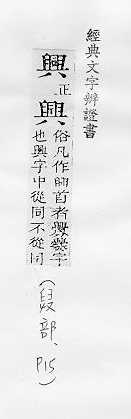 經典文字辨證書
興正
興俗凡作首者釁爨字
也興字中從同不從
(舁部、P15)